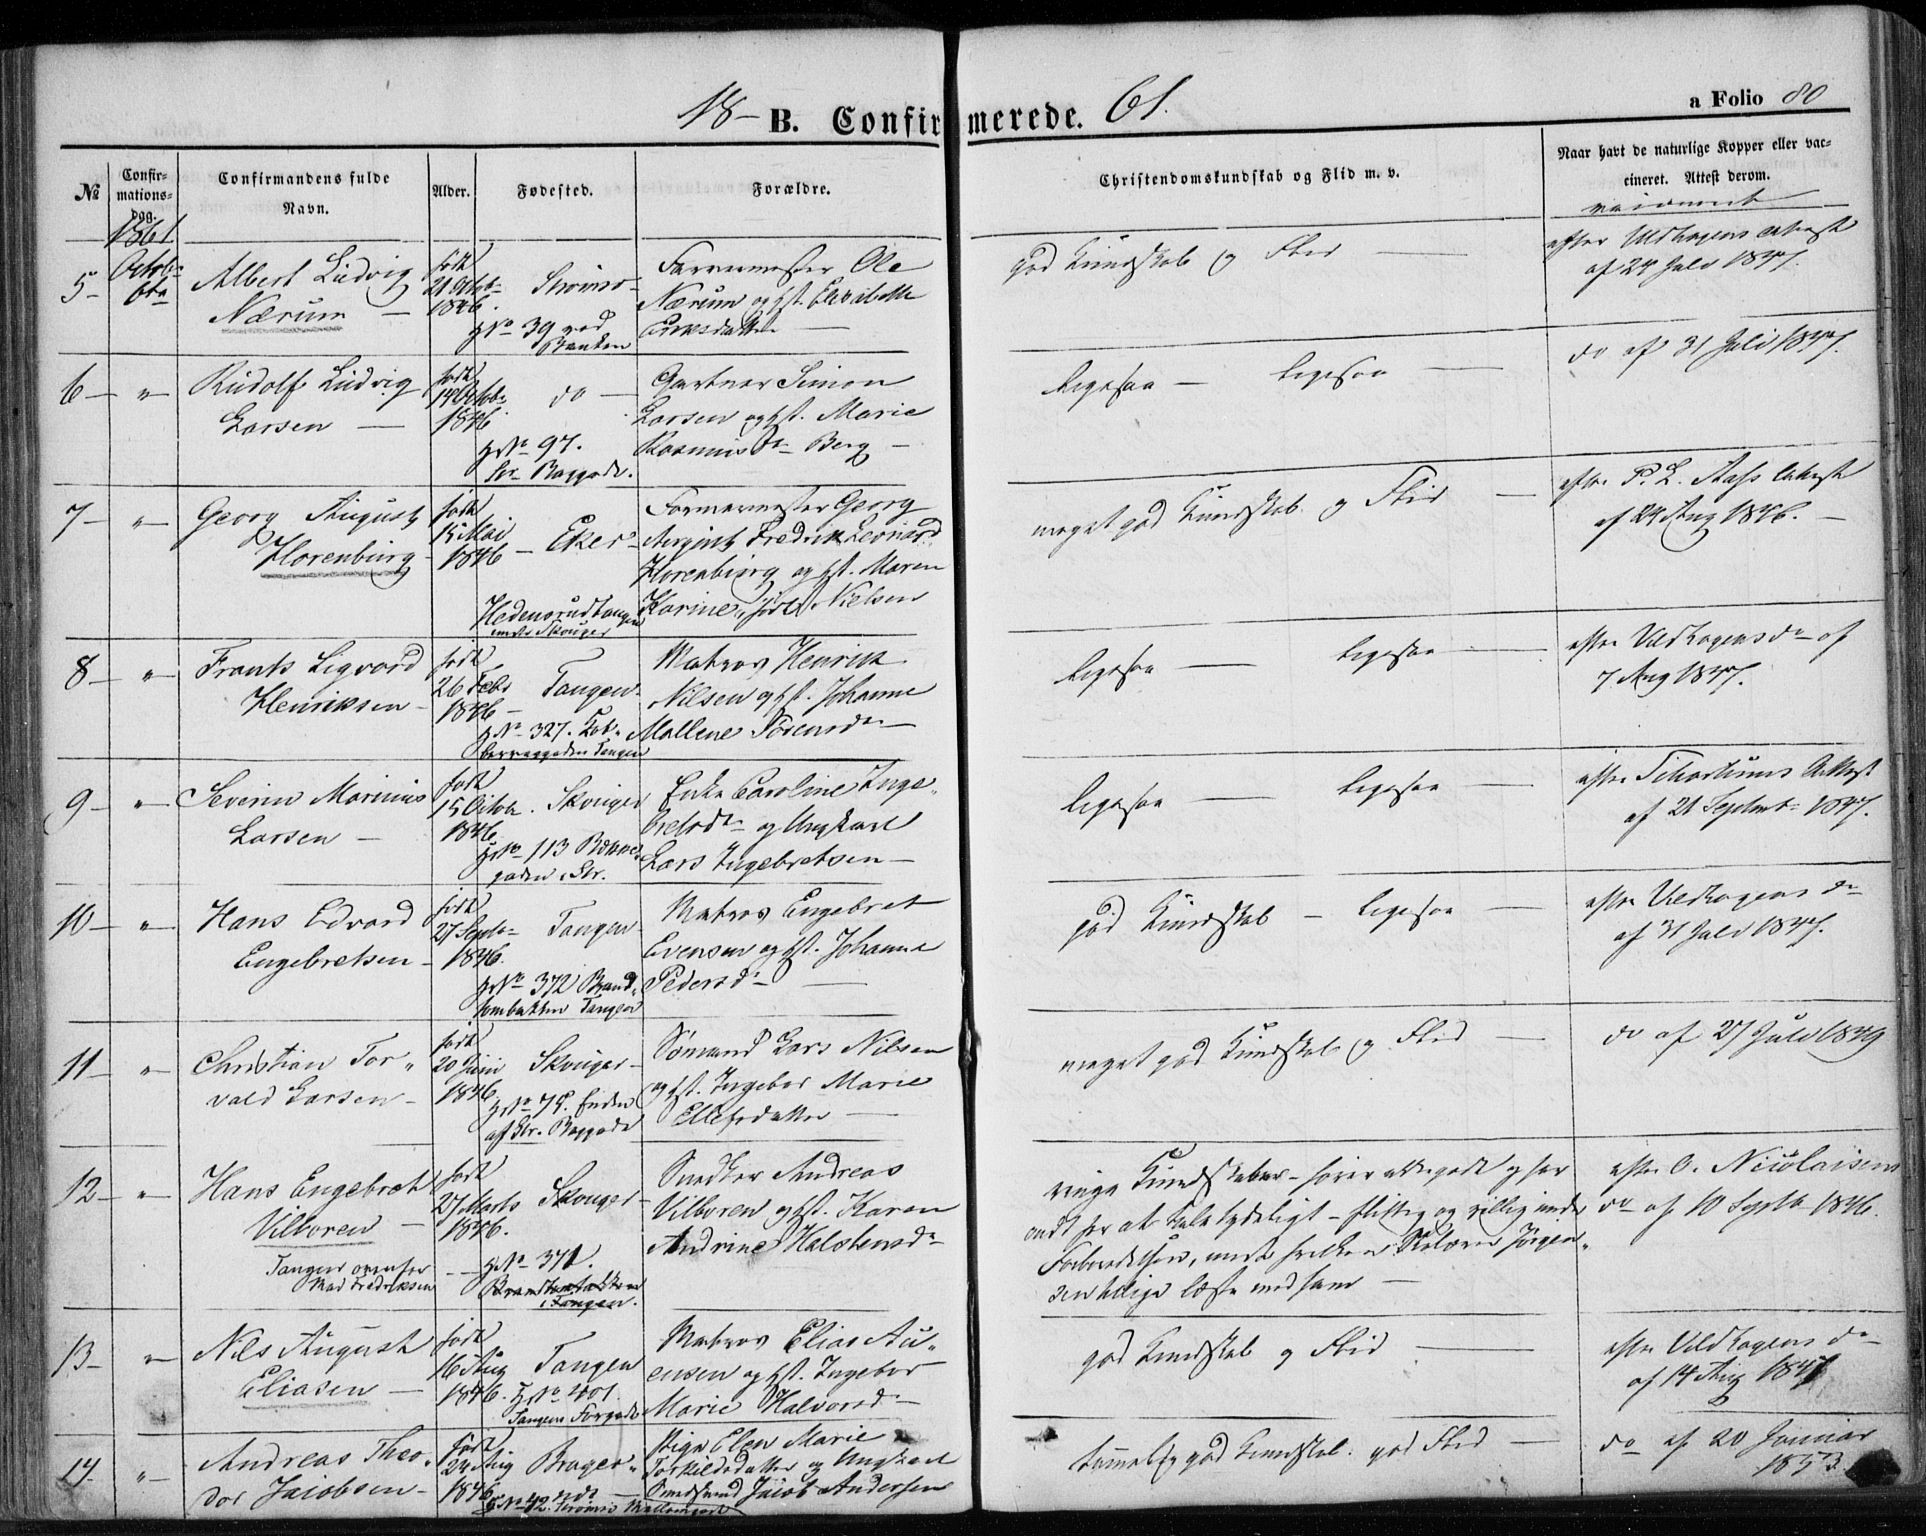 18- B. Confirmerede. 61.
a Folio 80
№
Confir-
mations-
dag.
Confirmandens fulde
Navn.
Alder.
Fødested.
Forældre.
Christendomskundskab og Flid m. v.
Naar havt de naturlige Kopper eller vac-
cineret. Attest derom.
1861
5-
Octob-
6te
Albert Ludvig
Nærum
født
21 Octob-
1846.
Strømsø-
No 39 ved
Banken
Farvermester Ole
Nærum og Hst. Elisabeth
god Kundskab og Flid
efter Uldhagens Attest
af 24 Juli 1847.
6- "
Rudolf Ludvig
Larsen
født
14 Octob-
1846.
do
No 97.
Str. Baggade.
Gartner Simon
Larsen og Hst. Marie
Rasmusdr Berg
ligesaa - ligesaa
do af 31 Juli 1847.
7- "
Georg August
Horenburg
født
15 Mai
1846
Eker-
Hedensrudtangen
under Skouger
Formermester Georg
August Fredrik Leonard
Horenburg og Hst. Maren
Karine, født Nielsen
meget god Kundskab og Flid
efter P. L. Aass Attest
af 24 Aug 1846.
8- "
Frants Sigvard
Henriksen
født
26 Febr
1846
Tangen-
No 327. Kob-
berveggaden Tangen
Matros Henrik
Nilsen og Hst. Johanne
Mallene Sørensdr
ligesaa - ligesaa
efter Uldhagens do af
7 Aug 1847.
9- "
Severin Marinius
Larsen
født
15 Octobr.
1846.
Skouger
No 113
gaden, Str.
Enke Caroline Inge-
bretsdr og Ungkarl
Lars Ingebretsen
ligesaa - ligesaa
efter Attest
af 21 Septemb- 1847.
10- "
Hans Edvard
Engebretsen
født
27 Septb-
1846.
Tangen
No 372 Brand-
tenbakken Tangen
Matros Engebret
Evensen og Hst. Johanne
Pedersdr
god Kundskab - ligesaa
efter Uldhagens do
af 31 Juli 1847.
11- "
Christian Tor-
vald Larsen
født
20 Juni
1846
Skouger-
No 75. Enden
af Str. Baggade
Sømand Lars Nilsen
og Hst. Ingebor Marie
Ellefsdatter
meget god Kundskab og Flid
do af 27 Juli 1849
12- "
Hans Engebret
Vilboren
Tangen ovenfor
Mad Fredriksen
født
27 Marts
1846.
Skouger-
No 371.
Brandtenbakken
i Tangen.
Snedker Andreas
Vilboren og Hst. Karen
Andrine Halstensdr
ringe Kundskaber - hører ikke godt og har
ondt for at tale tydeligt - flittig og villig under
Forberedelsen, under hvilken Skolærer Jørgen-
sen tillige læste med ham
efter O. Nicolaisens
do af 10 Septb 1846.
13- "
Nils August
Eliasen
født
16 Aug
1846.
Tangen
No 401.
Tangens Forgade
Matros Elias Au-
ensen og Hst. Ingebor
Marie Halvorsd-
god Kundskab og Flid
efter Uldhagens do
af 14 Aug 1847
14- "
Andreas Theo-
dor Jacobsen
født
24 Aug
1846
Brager-
nes
No 42. Strømsø
Pige Elen Marie
Torkildsdatter og Ungkarl
Jacob Andersen
temmelig god Kundskab. god Flid
do af 20 Januar
1853.